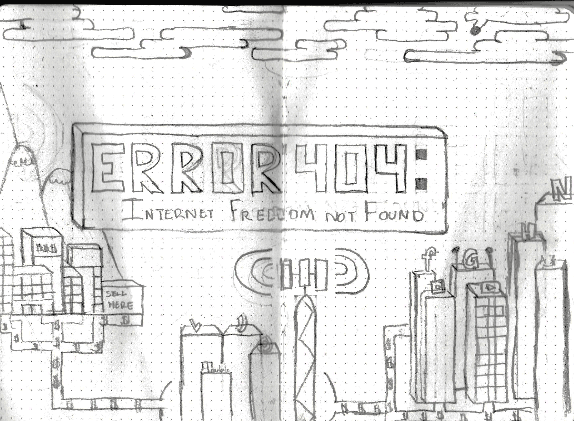 ERROR 404:
INTERNET FREEDOM NOT FOUND
N
f
G
SELL
HERE